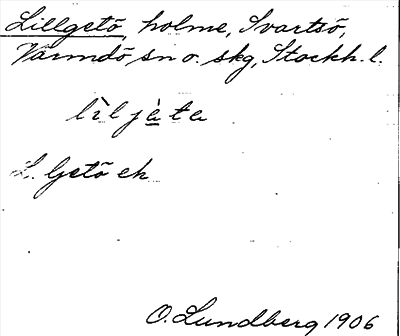 Lillgetö, holme, Svartsö,
Värmdö sn o. skg, Stockh. l.
lìl jè̱ta
L. Getö ek
O. Lundberg 1906